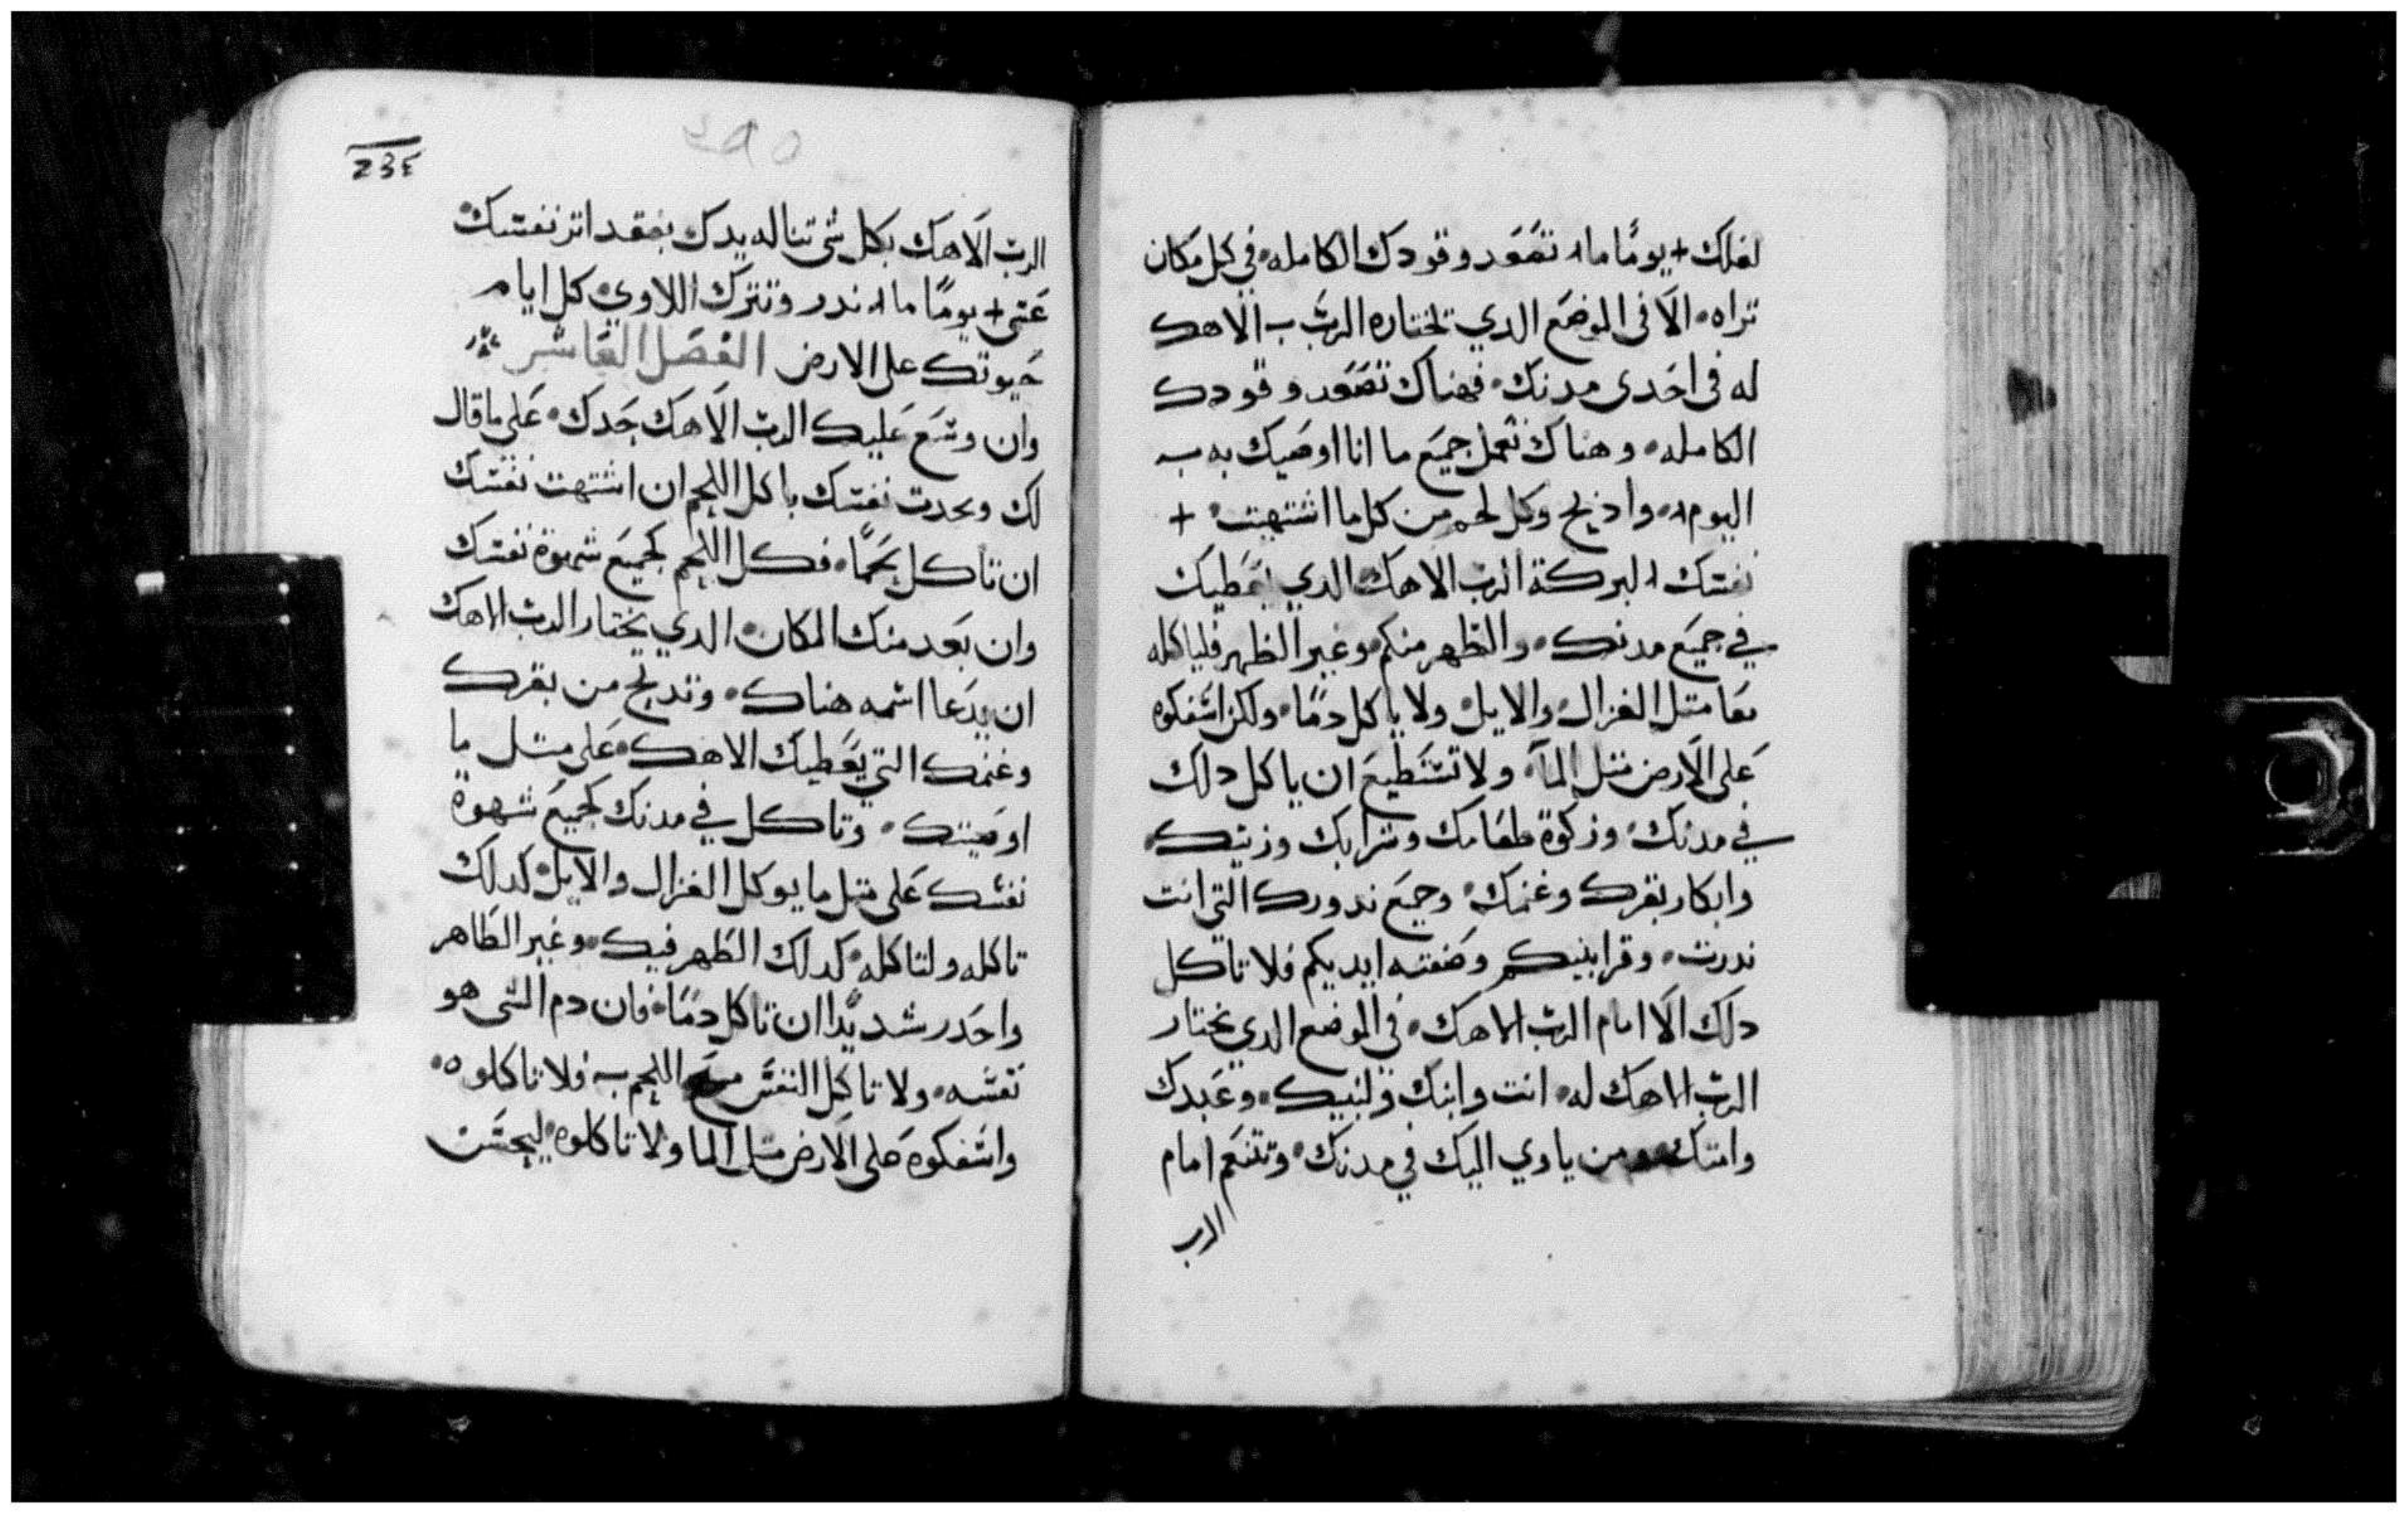 لعلك + يومًا ما ❊ تصَعَد وقودك الكامله۰ في كل مكان
تراه۰ الَا فى الموضَع الدي تختاره الربّ ب الاهك
له فى احَدى مدنك۰ فهناك تصَعَد وقودك
الكامله۰ وهناك تعمل جميَع ما انا اوصَيك به ب
اليوم❊۰ وادبح وكل لحم من كل ما اشتهيت۰ +
نفسَك البركة الربّ الاهك الدي يعَطيك
في جميَع مدنك۰ والطهر منكم۰ وغير الطهر فلياكله
معَا متل الغزال۰ والايل۰ ولا ياكل دمًا۰ ولكن اسَفكوه
عَلى الَارض متل المآ۰ ولا تسَتطيعَ ان ياكل دلك
في مدنك۰ وزكوة طعَامك وشرابك وزيتك۰
وابكار بقرك وغنمك۰ وجميَع ندورك التي انت
ندرت۰ وقرابينكم وصَنعَته ايديكم فلا تاكل
دلك الَا امام الربّ الاهك۰ في الموضع الدي يختار
الربّ الاهك له۰ انت وابنك ولبنيك۰ وعَبدك
وامتك۰ ومن ياوي اليك في مدنك۰ وتتنعَم امام
الرب
٢٩٥
الربّ الَاهَك بكل شى تناله يدك بعقد اتز نفسَك۰
عَتى + يومًا ما ❊ ندر وتترك اللاوي۰ كل ايام
حَيوتك على الارض الفصَل العَاشر
وان وسَع عَليك الربّ الَاهَك حَدك۰ عَلى ما قال
لك وتحدت نفسَك باكل اللحم ان اشتهت نفسَك
ان تاكل لحَمًا۰ فكل اللحم لجميَع شهوة نفسَك
وان بعَد منك المكان۰ الدي يختار الربّ الاهك
ان يدعَا اسَمه هناك۰ وتدبح من بقرك
وغنمك التي يعَطيك الاهك۰ عَلى متل ما
اوصَيتك۰ وتاكل في مدنك لجميَع شهوة
نفسَك عَلى متل ما يوكل الغزال والايل۰ كدلك
تاكله ولتاكله۰ كدلك الطَهر فيك۰ وغير الطَاهر
واحَدر شديدًا ان تاكل دمًا۰ فان دم الشى هو
نفسَه۰ ولا تاكل النفسَ مع اللحم ب فلا تاكلوه۰
واسَفكوه عَلى الَارض متل الما ولا تاكلوه۰ ليحسَن